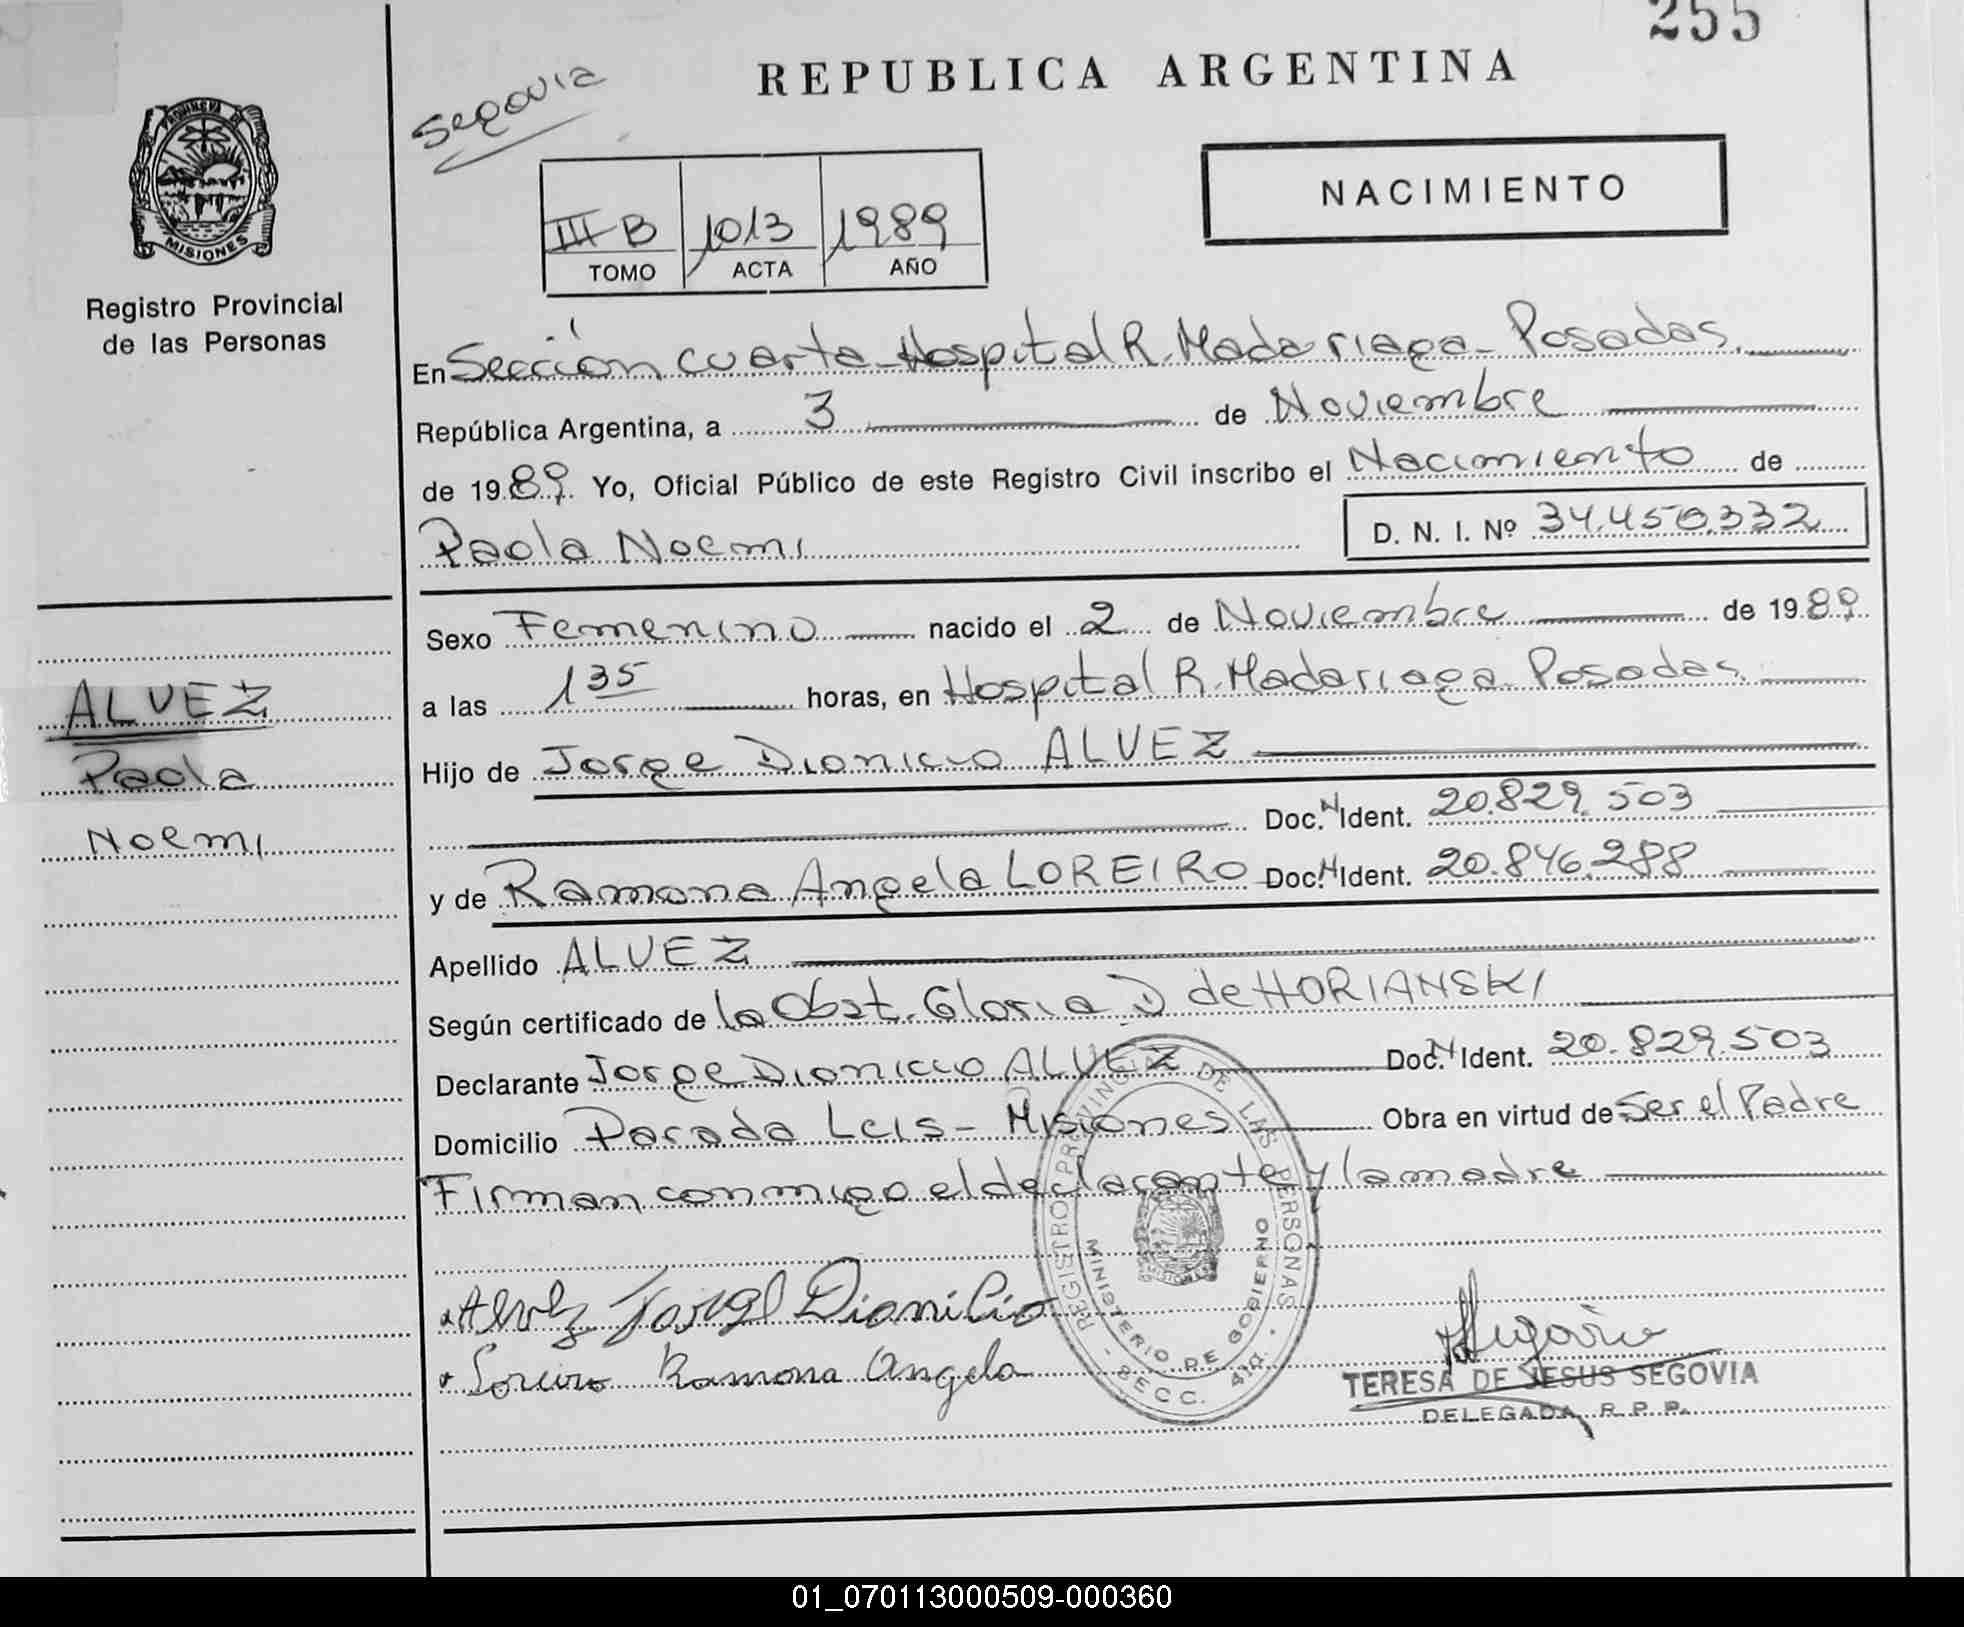 255
REPUBLICA ARGENTINA
Segovia
NACIMIENTO
III B 1013 1989
TOMO ACTA AÑO
PROVINCIA DE MISIONES
Registro Provincial
de las Personas
En Sección cuarta - Hospital R. Madariaga - Posadas.
República Argentina, a 3 de Noviembre
de 1989. Yo, Oficial Público de este Registro Civil inscribo el Nacimiento de
Paola Noemi D. N. I. Nº 34.450.332
Sexo Femenino nacido el 2 de Noviembre de 1989
a las 1 35 horas, en Hospital R. Madariaga - Posadas.
Hijo de Jorge Dionicio ALVEZ
Doc. N Ident. 20.829.503
y de Ramona Angela LOREIRO Doc. N Ident. 20.846.288
Apellido ALVEZ
Según certificado de la Obst. Gloria D de HORIANSKI
Declarante Jorge Dionicio ALVEZ Doc. N Ident. 20.829.503
Domicilio Parada Leis - Misiones Obra en virtud de Ser el Padre
Firman conmigo el declarante y la madre
ALVEZ
Paola
Noemi
Alvez Jorge Dionicio
Loreiro Ramona Angela
REGISTRO PROVINCIAL DE LAS PERSONAS
MINISTERIO DE GOBIERNO
- SECC. 4ta. -
MISIONES
Segovia
TERESA DE JESUS SEGOVIA
DELEGADA R. P. P.
01_070113000509-000360